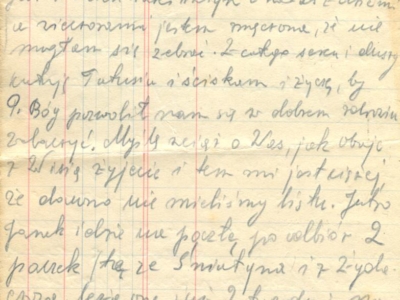 a wieczorami jestem zmęczona, że nie
mogłam się zebrać. Z całego serca i duszy
całuję Tatusia i ściskam i życzę, by
P. Bóg pozwolił nam się w dobrem zdrowiu
zobaczyć. Myślę wciąż o Was, jak oboje
z Wisią żyjecie i tem mi jest ciężej
że dawno nie mieliśmy listu. Jutro
Janek idzie na pocztę po odbiór 2
paczek tę ze Śniatyna i z Żyda-